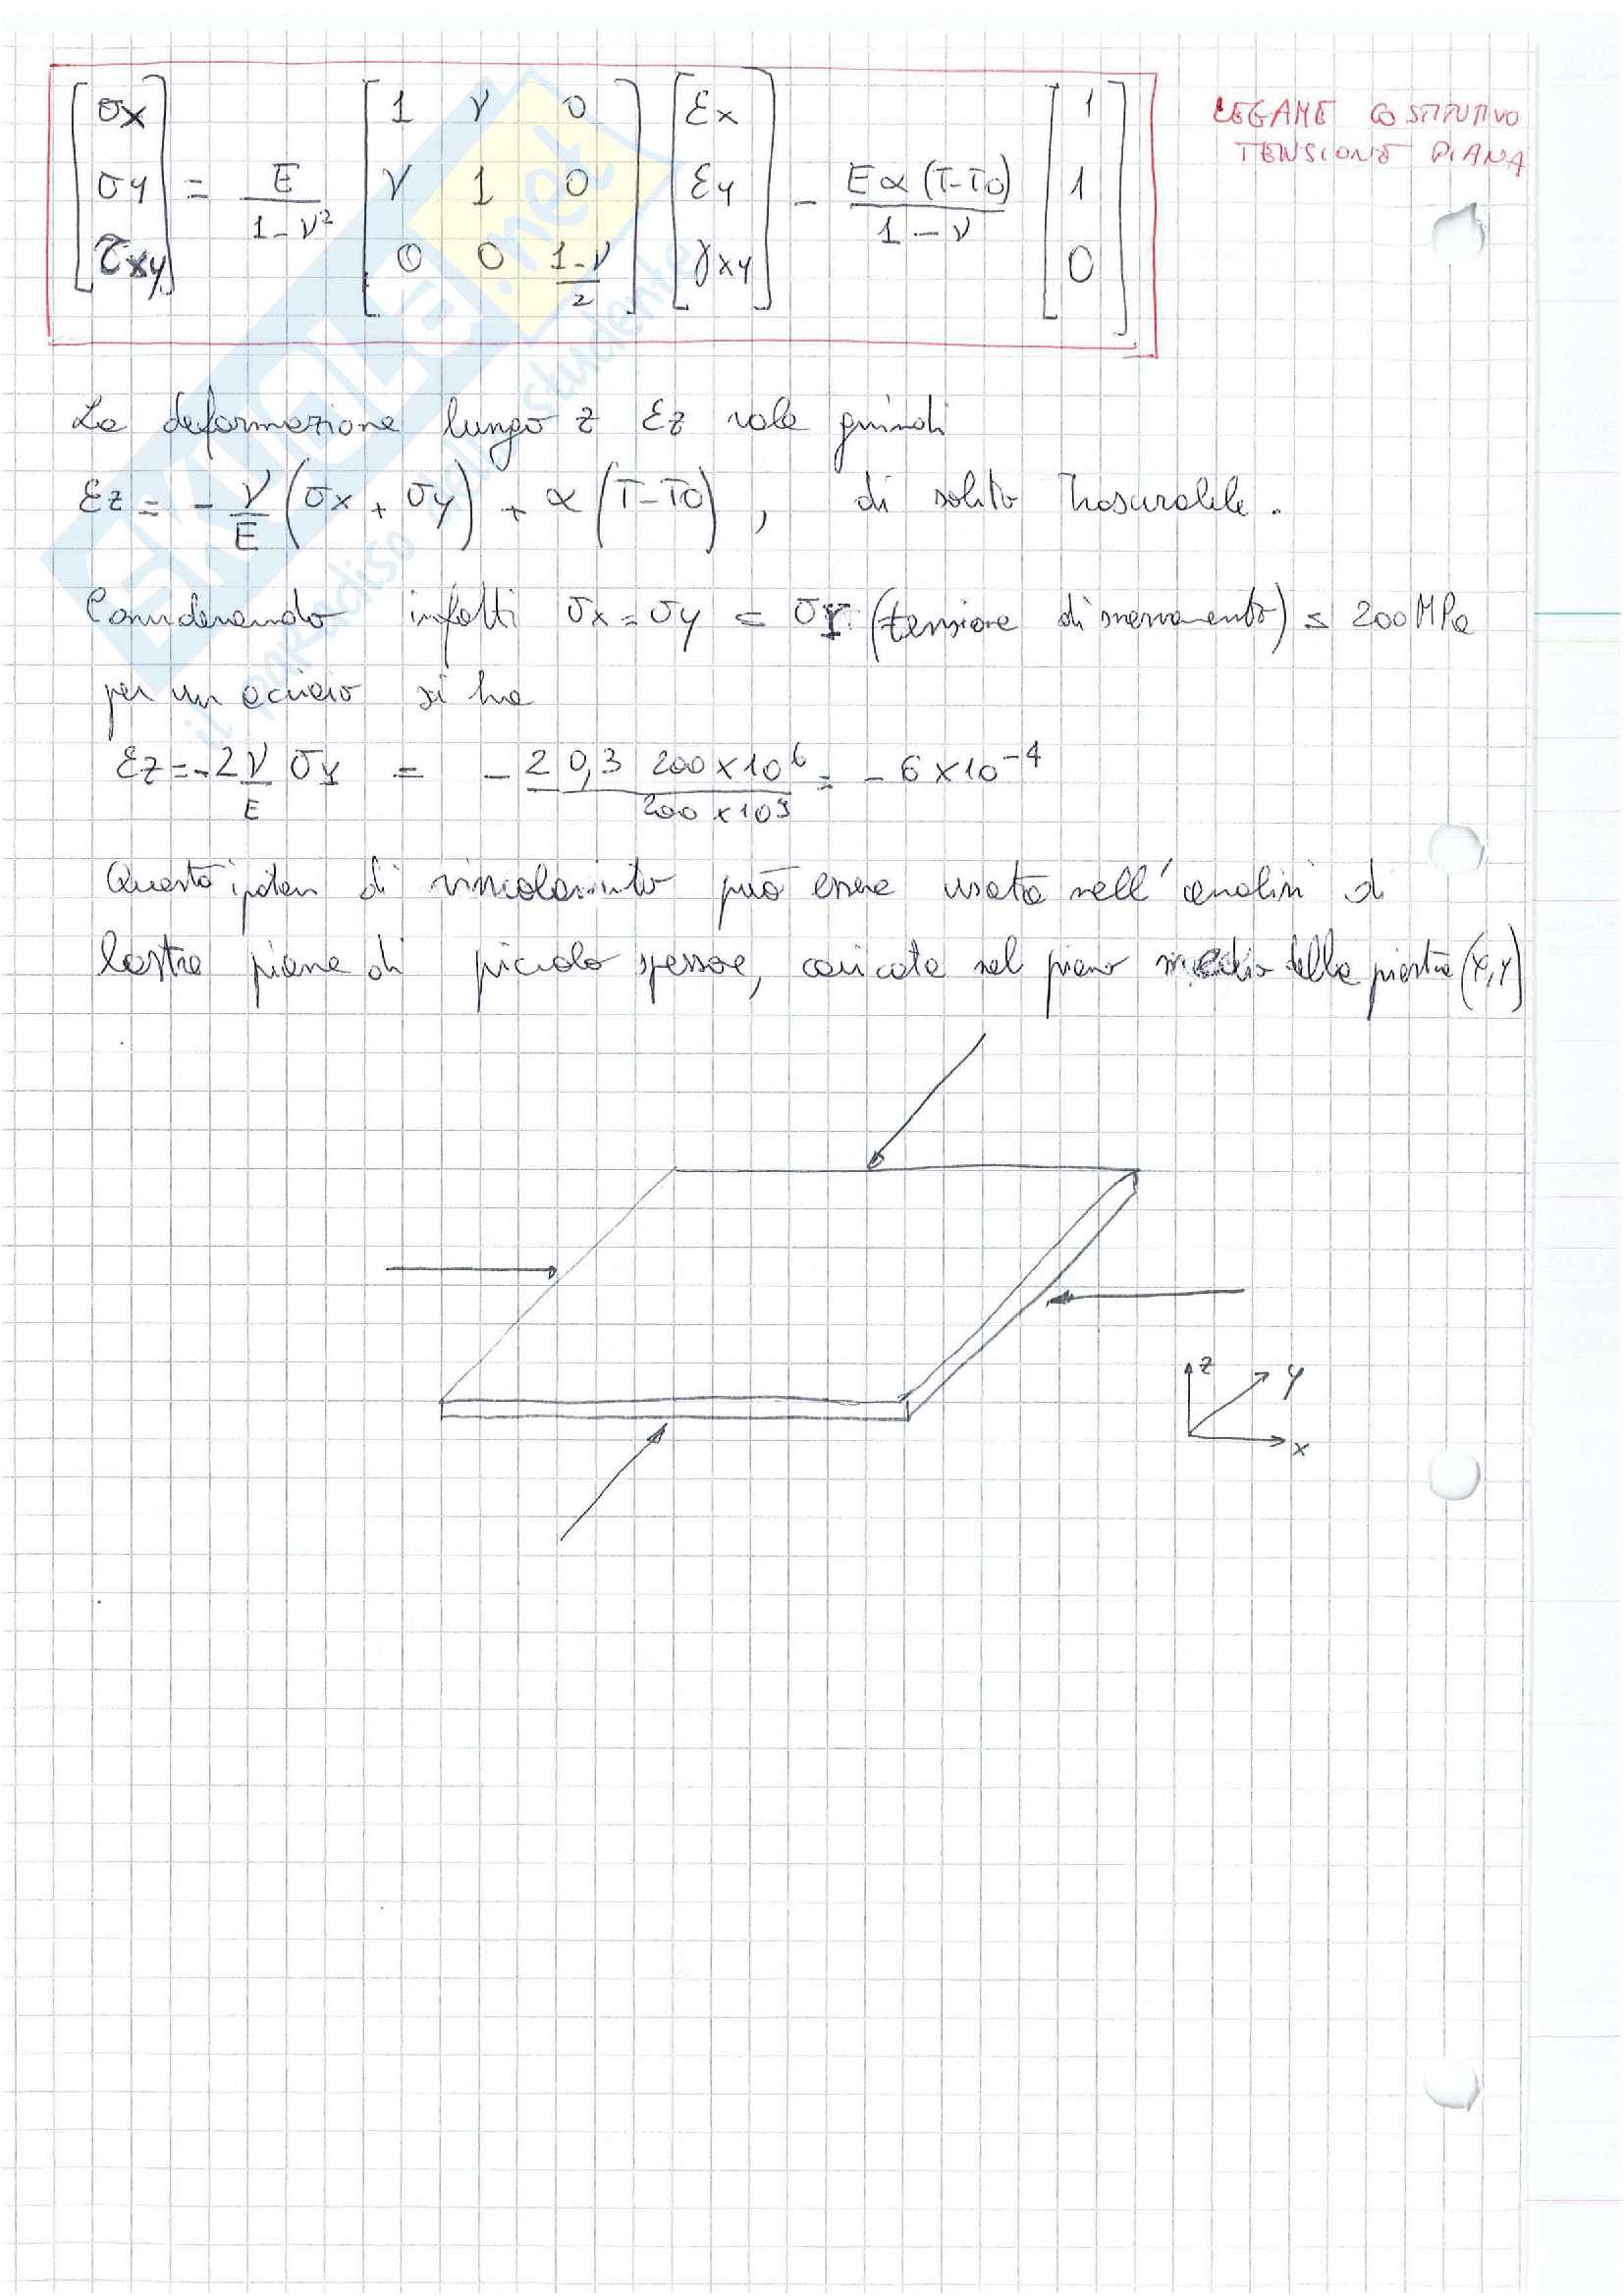 [σx σy τxy] = E/(1-ν²) [1 ν 0; ν 1 0; 0 0 (1-ν)/2] [εx εy γxy] - Eα(T-T0)/(1-ν) [1 1 0]
LEGAME COSTITUTIVO
TENSIONE PIANA
La deformazione lungo z εz vale quindi
εz = -ν/E (σx + σy) + α(T-T0), di solito trascurabile.
Considerando infatti σx = σy = σY (tensione di snervamento) ≤ 200 MPa
per un acciaio si ha
εz = -2ν/E σY = - 2 0,3 200×10⁶ / 200×10⁹ = -6×10⁻⁴
Questa ipotesi di vincolamento può essere usata nell'analisi di
lastre piane di piccolo spessore, caricate nel piano medio della piastra (x,y)
z
y
x
SKUOLA.net
il paradiso dello studente